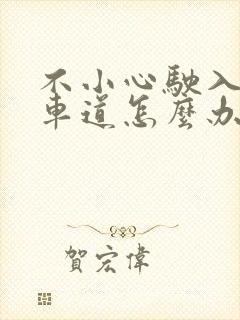 不小心駛入
車道怎麼办
賀宏偉